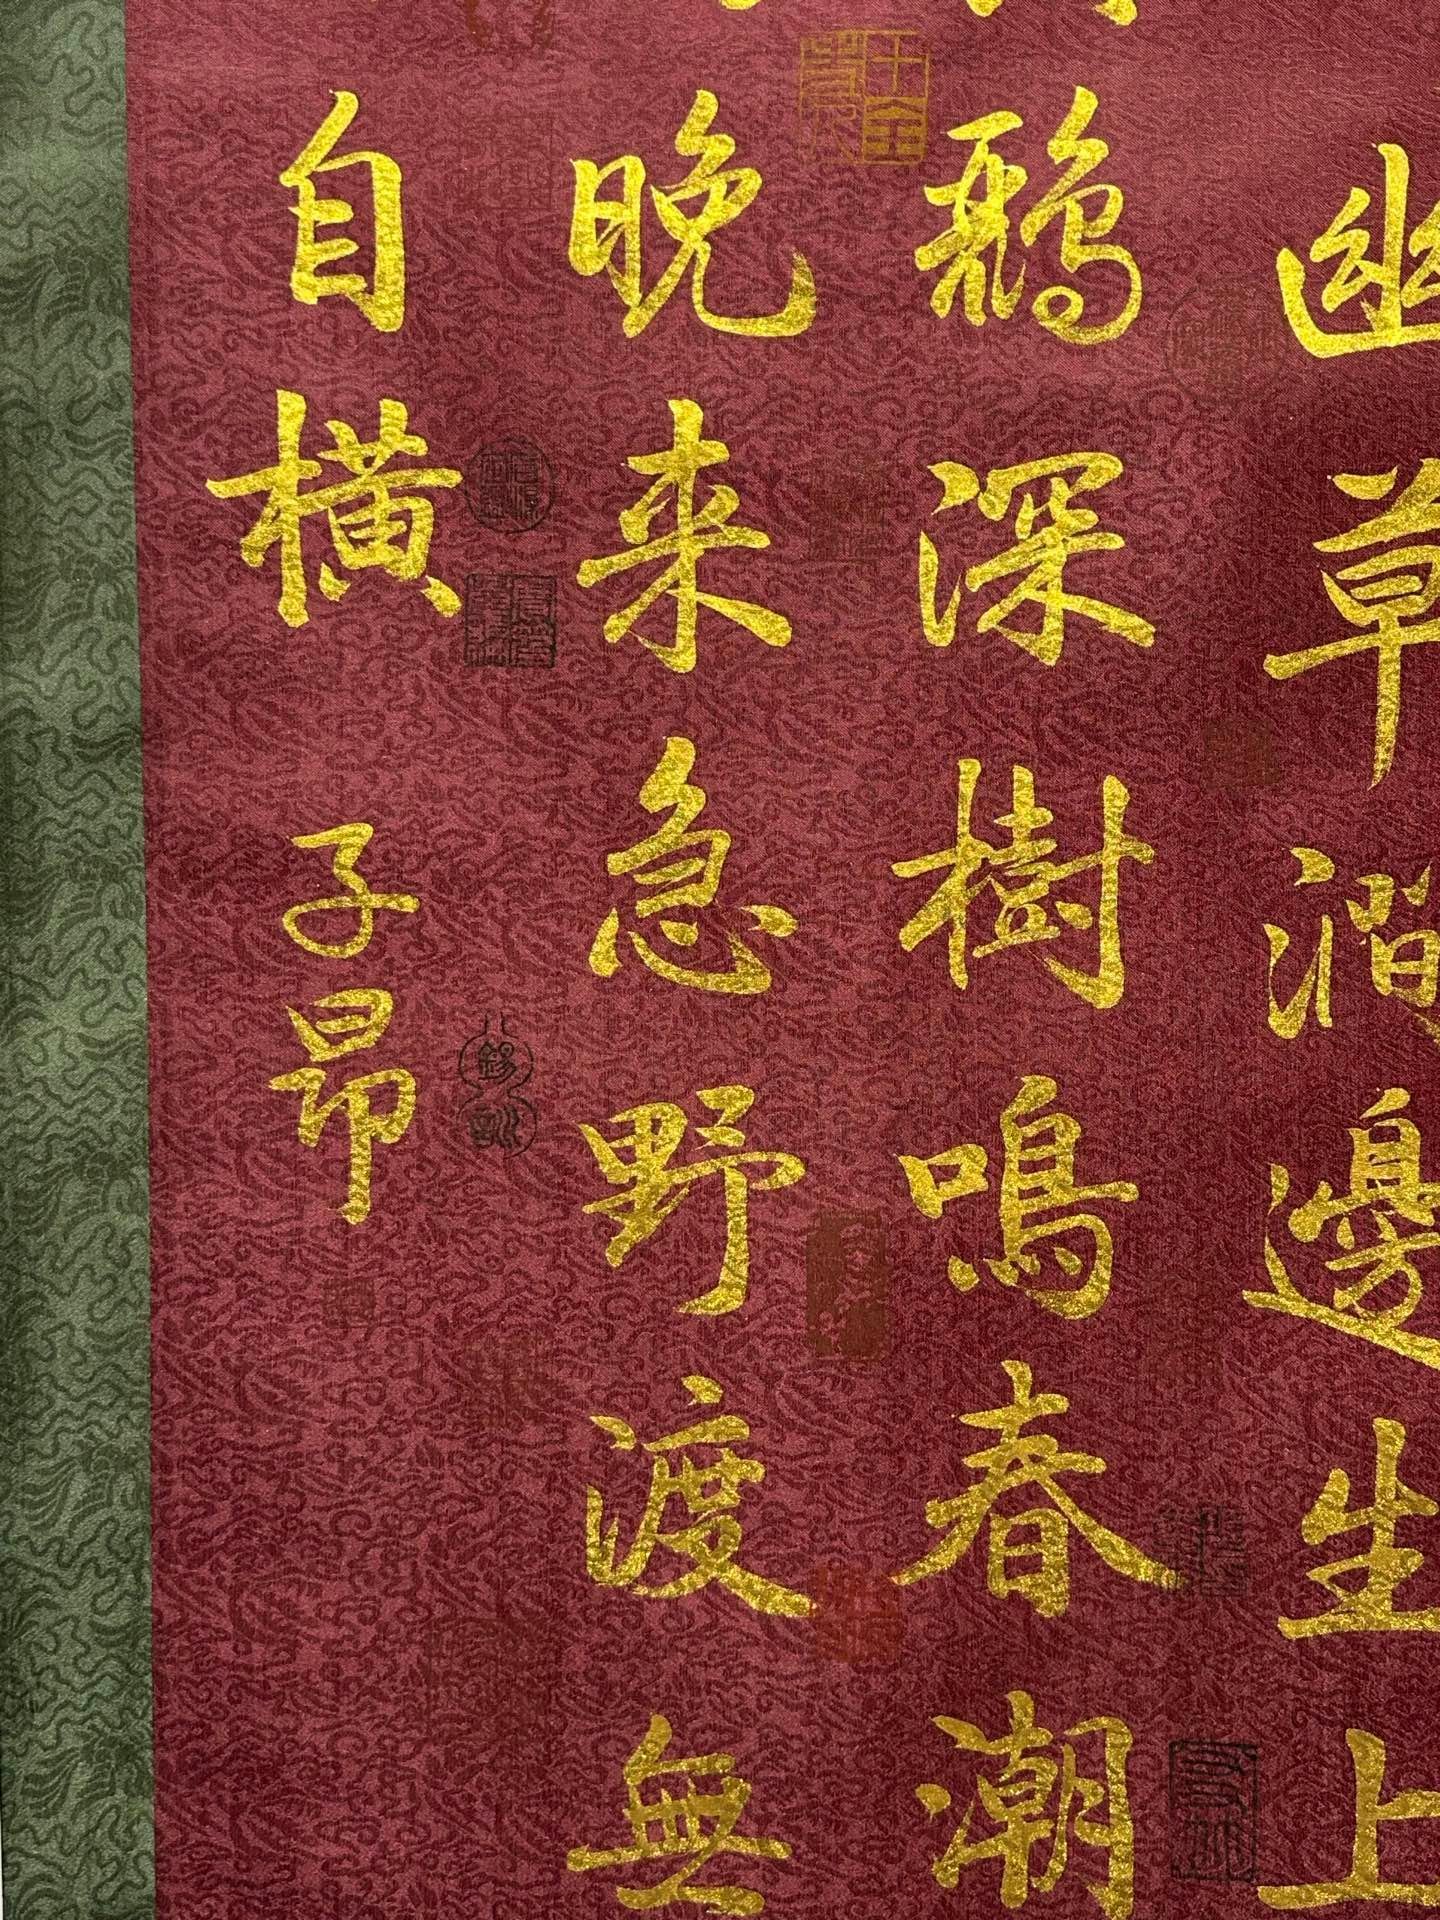 幽草澗邊生上
鸝深樹鳴春潮
晚來急野渡無
自橫
子昂